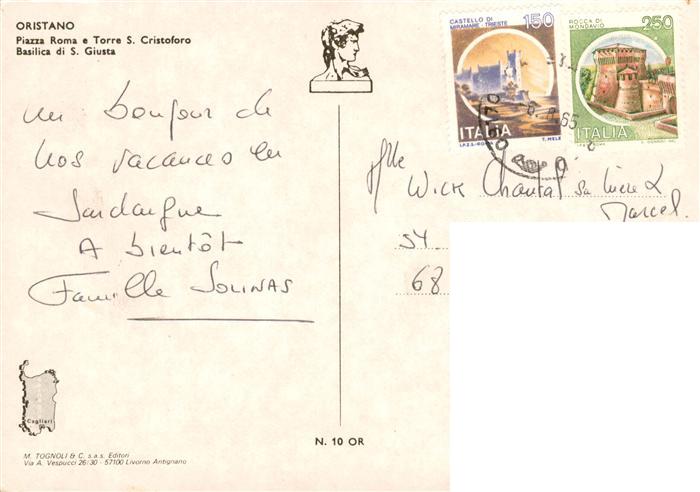 ORISTANO
Piazza Roma e Torre S. Cristoforo
Basilica di S. Giusta
CASTELLO DI
MIRAMARE - TRIESTE
150
ITALIA
I.P.Z.S. - ROMA
T. MELE
ROCCA DI
MONDAVIO
250
ITALIA
un bonjour de
nos vacances en
Sardaigne
A bientôt
Famille SOLINAS
Mlle
WICK Chantal sa mère &
Marcel.
54
68
Cagliari
M. TOGNOLI & C. s.a.s. Editori
Via A. Vespucci 26/30 - 57100 Livorno Antignano
N. 10 OR